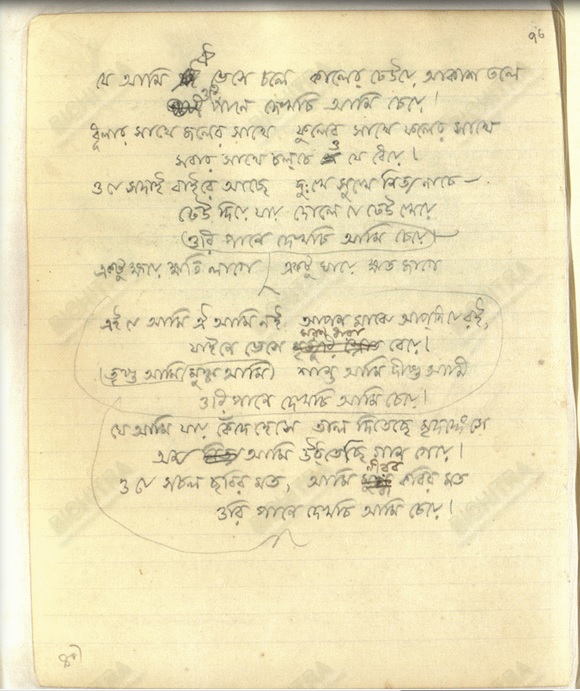 ৭৮
যে আমি ঐ ভেসে চলে কালের ঢেউয়ে আকাশ তলে
ওরি পানে দেখচি আমি চেয়ে!
ধূলার সাথে জলের সাথে ফুলের সাথে ফলের সাথে
সবার সাথে চলচে ও যে ধেয়ে।
ও যে সদাই বাইরে আছে দুঃখে সুখে নিত্য নাচে –
ঢেউ দিয়ে যায় দোলে যে ঢেউ খেয়ে
ওরি পানে দেখচি আমি চেয়ে –
একটু ক্ষয়ে ক্ষতি লাগে একটু ঘায়ে ক্ষত জাগে
এই যে আমি ঐ আমি নই আপন মাঝে আপনি যে রই,
যাইনে ভেসে মরণ ধারা বেয়ে।
মুক্ত আমি তৃপ্ত আমি শান্ত আমি দীপ্ত আমি
ওরি পানে দেখচি আমি চেয়ে।
যে আমি যায় কেঁদে হেসে তাল দিতেছে মৃদঙ্গে সে
অন্য আমি উঠতেছি গান গেয়ে।
ও যে সচল ছবির মত, আমি নীরব কবির মত
ওরি পানে দেখচি আমি চেয়ে।
BICHITRA